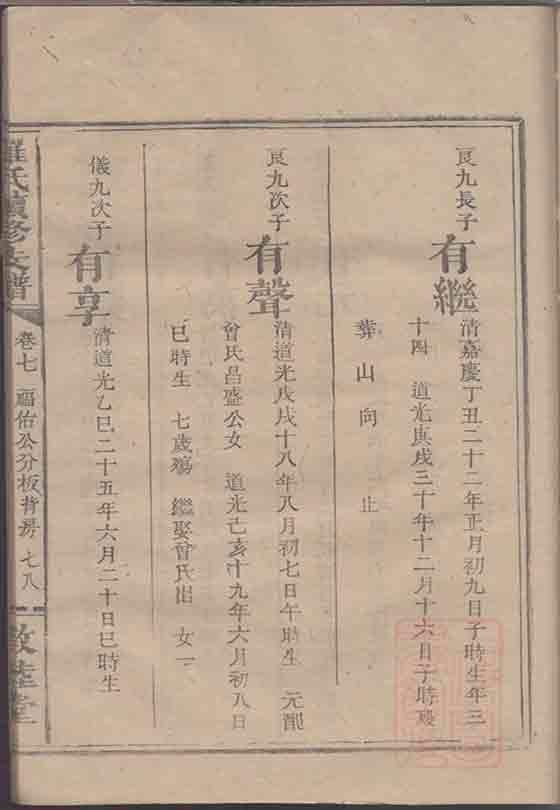 良九長子
有繼
清嘉慶丁丑二十二年正月初九日子時生年三
十四　道光庚戌三十年十二月十六日子時歿
葬　山　向　止
良九次子
有聲
清道光戊戌十八年八月初七日午時生　元配
曾氏昌盛公女　道光己亥十九年六月初八日
巳時生　七歲殤　繼娶曾氏出　女一
儀九次子
有享
清道光乙巳二十五年六月二十日巳時生
羅氏續修支譜
卷七　福佑公分板背房　七八
敦睦堂